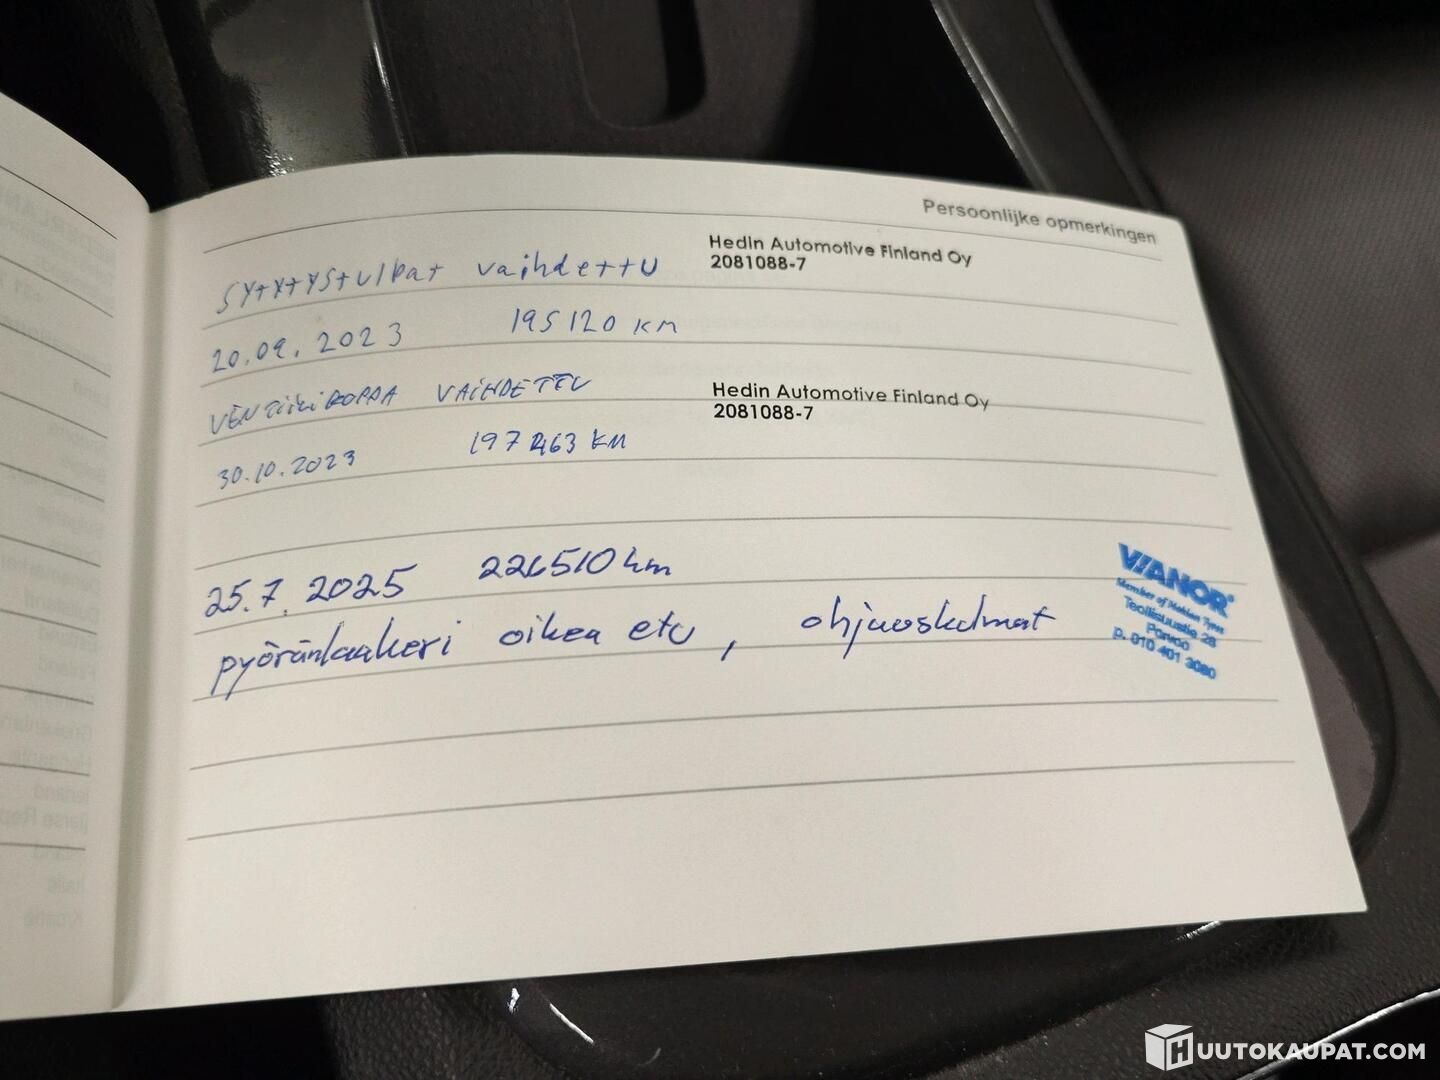 Persoonlijke opmerkingen
sytytystulpat vaihdettu
Hedin Automotive Finland Oy
2081088-7
20.09.2023 195120 KM
VENTTiiLiKOPPA VAiHDETTU
Hedin Automotive Finland Oy
2081088-7
30.10.2023 197463 KM
25.7.2025 226510 km
pyöränlaakeri oikea etu, ohjauskulmat
VIANOR
Member of Nokian Tyres
Teollisuustie 28
Porvoo
p. 010 401 3080
HUUTOKAUPAT.COM